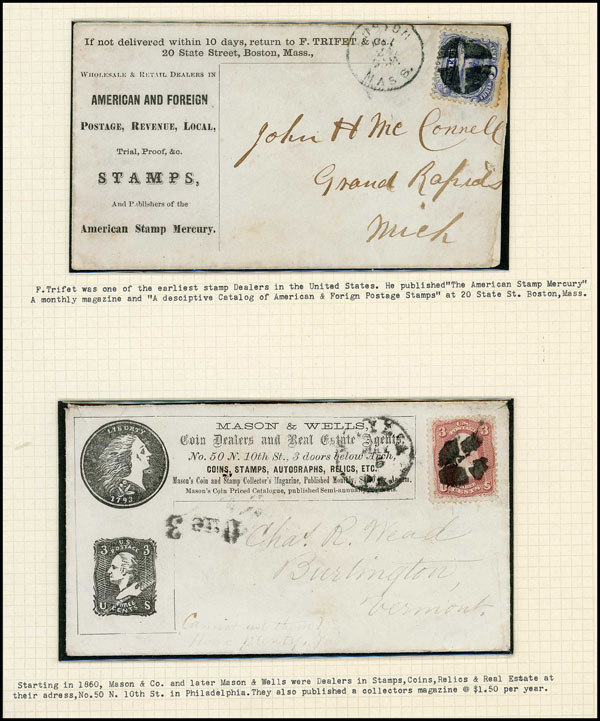 If not delivered within 10 days, return to F. TRIFET & Co.
20 State Street, Boston, Mass.,
BOSTON
MASS.
WHOLESALE & RETAIL DEALERS IN
AMERICAN AND FOREIGN
POSTAGE, REVENUE, LOCAL,
Trial, Proof, &c.
STAMPS,
And Publishers of the
American Stamp Mercury.
John H Mc Connell
Grand Rapids
Mich
F.Trifet was one of the earliest stamp Dealers in the United States. He published"The American Stamp Mercury"
A monthly magazine and "A desciptive Catalog of American & Forign Postage Stamps" at 20 State St. Boston,Mass.
MASON & WELLS,
Coin Dealers and Real Estate Agents,
No. 50 N. 10th St., 3 doors below Arch,
COINS, STAMPS, AUTOGRAPHS, RELICS, ETC.
Mason's Coin and Stamp Collector's Magazine, Published Monthly,
Mason's Coin Priced Catalogue, published Semi-annually
LIBERTY
1793
3 3
CENTS
Due 3
U.S. POSTAGE
3 3
U THREE S
CENTS
Chas. R. Wead
Burlington,
Vermont.
Starting in 1860, Mason & Co. and later Mason & Wells were Dealers in Stamps,Coins,Relics & Real Estate at
their adress,No.50 N. 10th St. in Philadelphia.They also published a collectors magazine @ $1.50 per year.